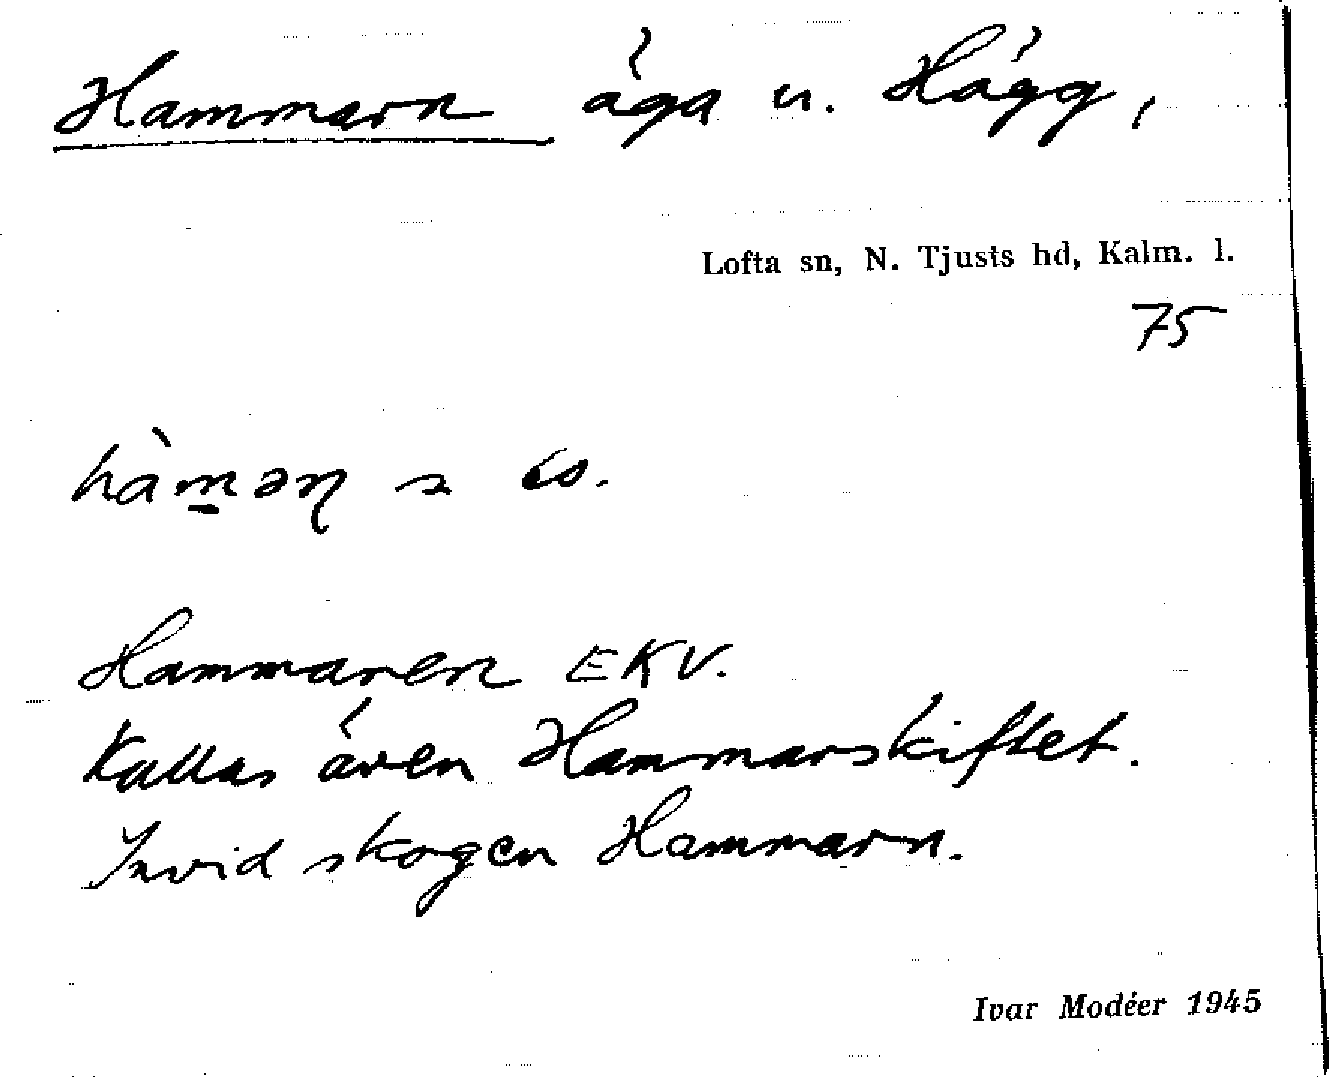 Hammarn äga u. Hägg,
Lofta sn, N. Tjusts hd, Kalm. l.
75
hàm̲əɳ
Hammaren EKV.
Kallas även Hammarskiftet.
Invid skogen Hammarn.
Ivar Modéer 1945